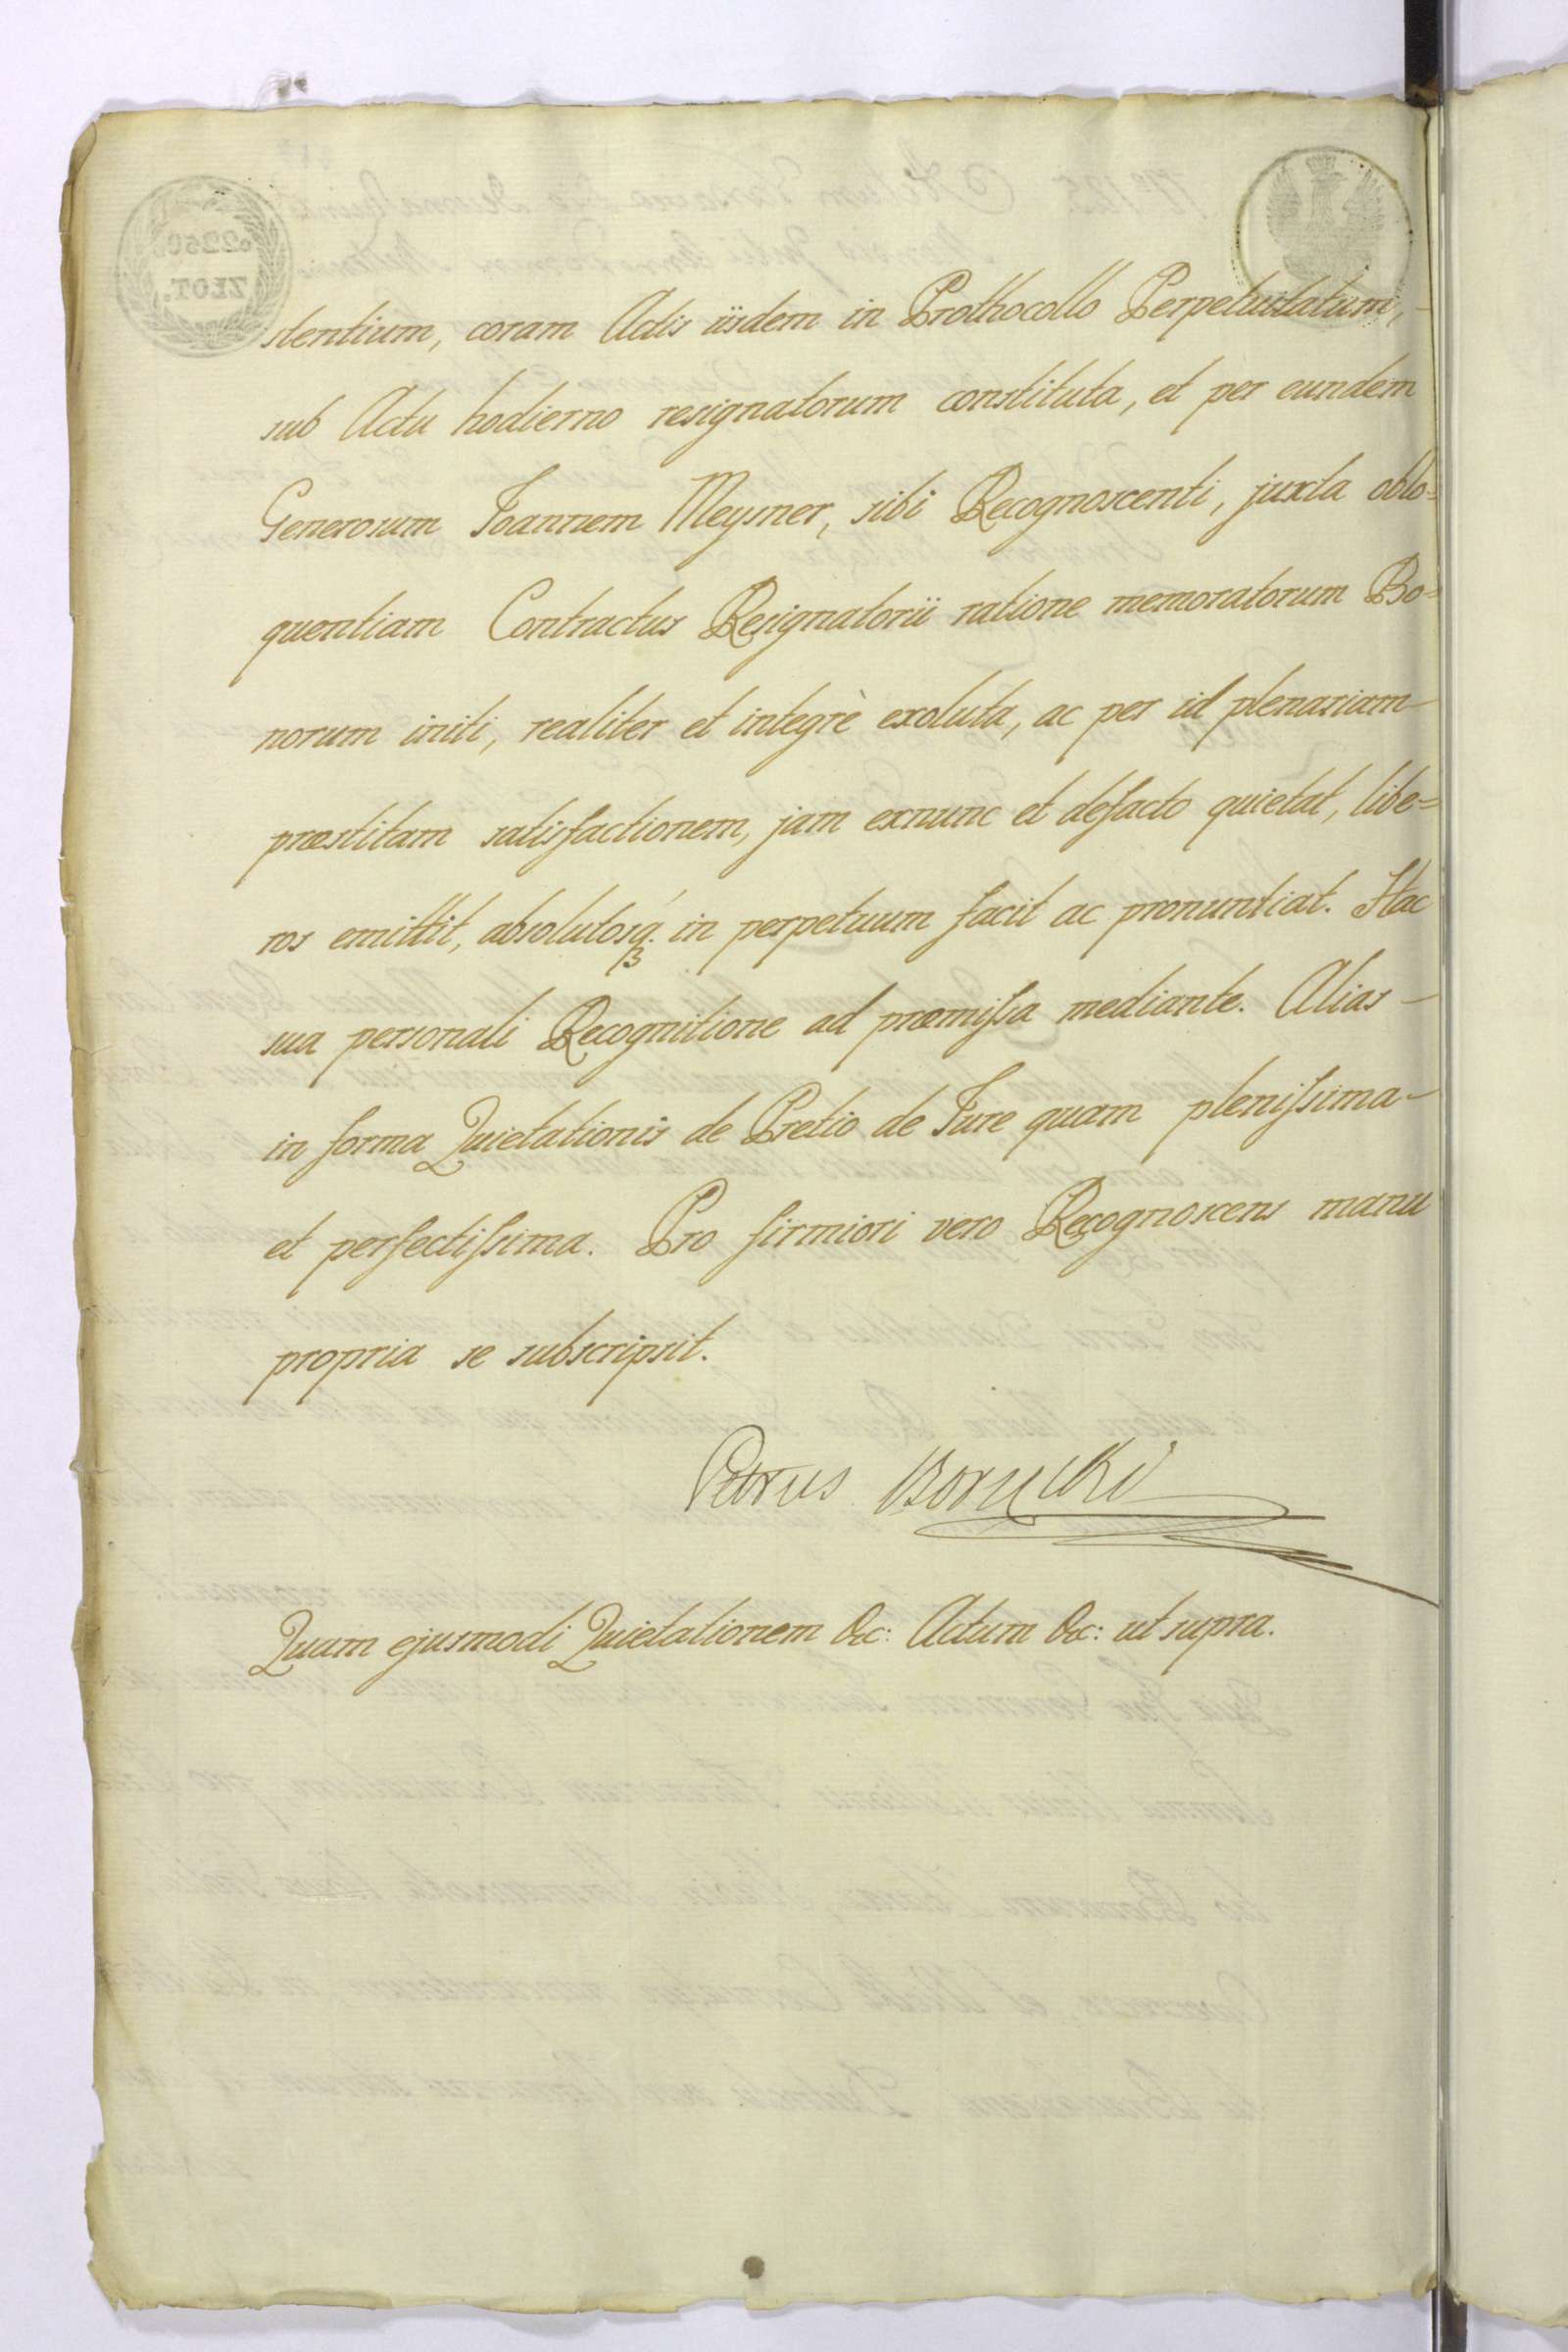 stentium, coram Actis iisdem in Prothocollo Perpetuitatum,
sub Actu hodierno resignatorum constituta, et per eundem
Generosum Joannem Meysner, sibi Recognoscenti, juxta oblo=
quentiam Contractus Resignatorii ratione memoratorum Bo=
norum initi, realiter et integrè exoluta, ac per id plenariam
præstitam satisfactionem, jam exnunc et defacto quietat, libe=
ros emittit, absolutosq́. in perpetuum facit ac pronuntiat. Hac
sua personali Recognitione ad præmiſsa mediante. Alias
in forma Quietationis de Pretio de Jure quam pleniſsima
et perfectiſsima. Pro firmiori vero Recognoscens manu
propria se subscripsit.
Petrus Borucki
Quam ejusmodi Quietationem &c: Actum &c: ut supra.